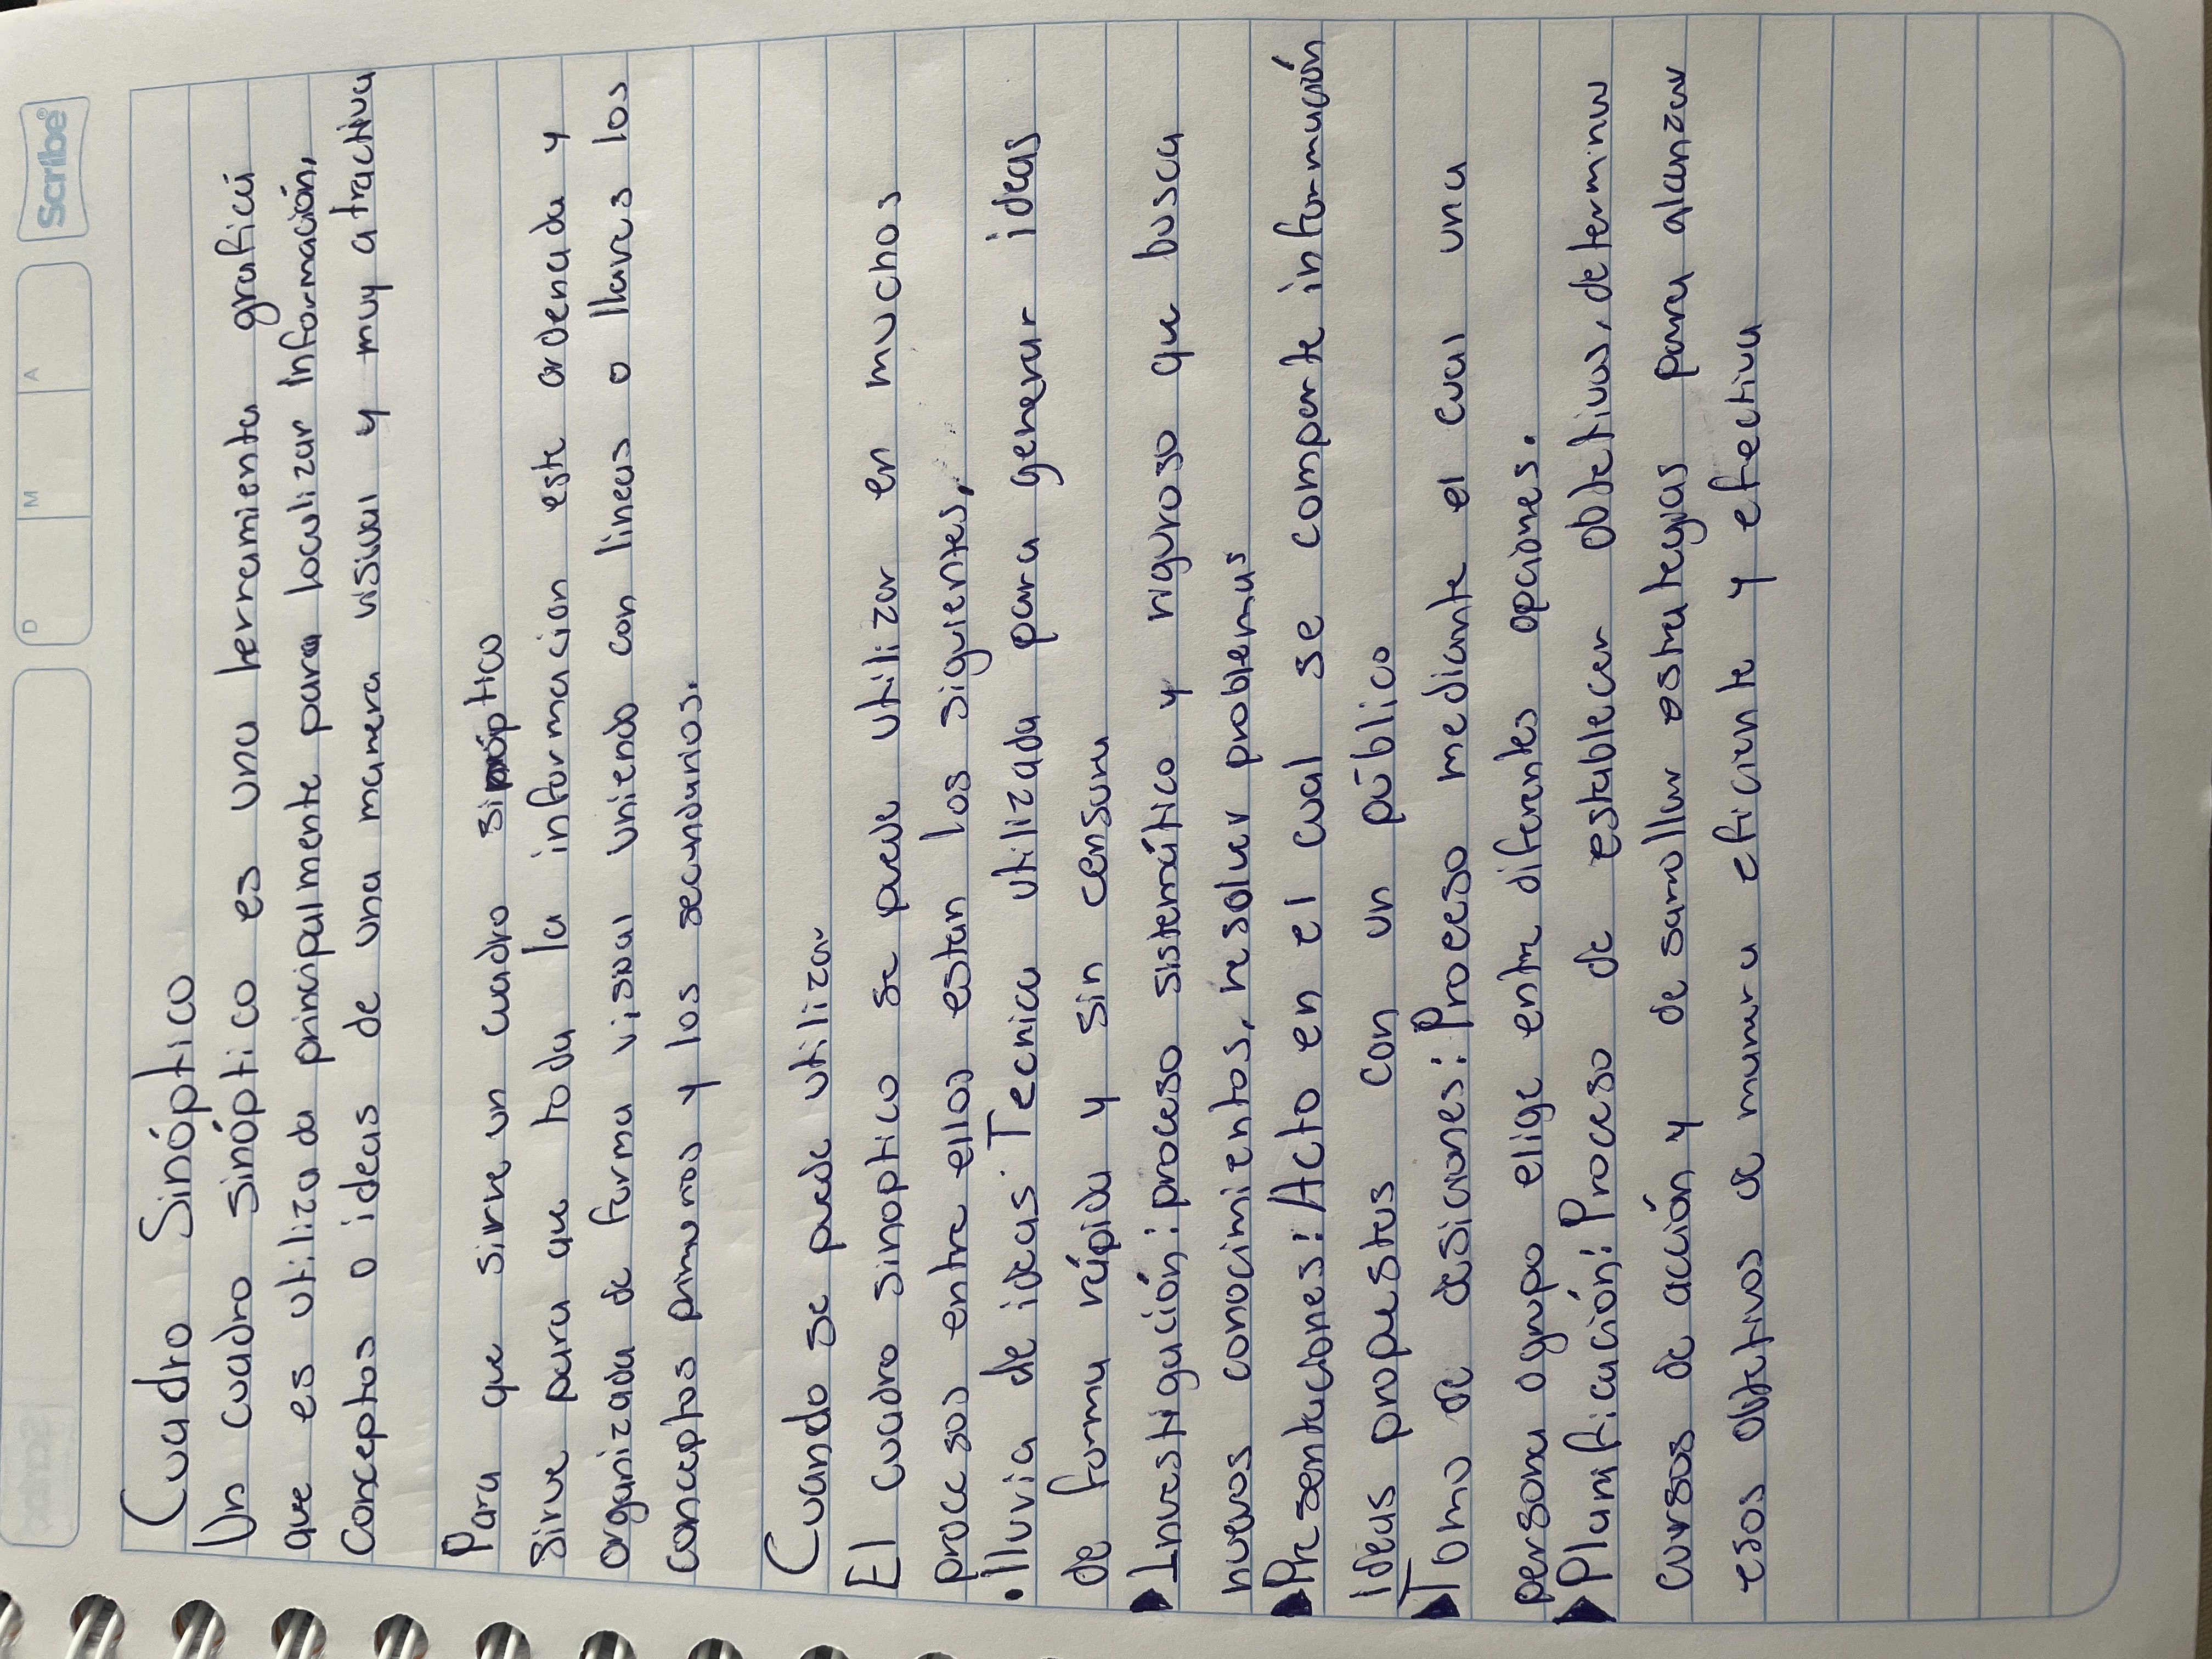 Scribe
D M A
Cuadro Sinóptico
Un cuadro sinóptico es una herramienta grafica
que es utilizada principalmente para loculizar Información,
Conceptos o ideas de una manera visual y muy atractiva
Para que sirve un cuadro sinóptico
Sirve para que toda la informacion este ordenada y
organizada de forma visual uniendo con lineas o llaves los
conceptos primarios y los secundarios.
Cuando se puede utilizar
El cuadro sinoptico se puede utilizar en muchos
procesos entre ellos estan los siguientes,
• lluvia de ideas: Tecnica utilizada para generar ideas
de forma rápida y sin censura
Investigación: proceso sistemático y riguroso que busca
nuevos conocimientos, resolver problemas
Presentaciones: Acto en el cual se comparte información
Ideas propuestas con un público
Toma de desiciones: Proceso mediante el cual una
persona o grupo elige entre diferentes opciones.
Planificación: Proceso de establecer objetivos, determinar
cursos de acción y desarrollar estrategias para alanzar
esos objetivos de manera eficiente y efectiva